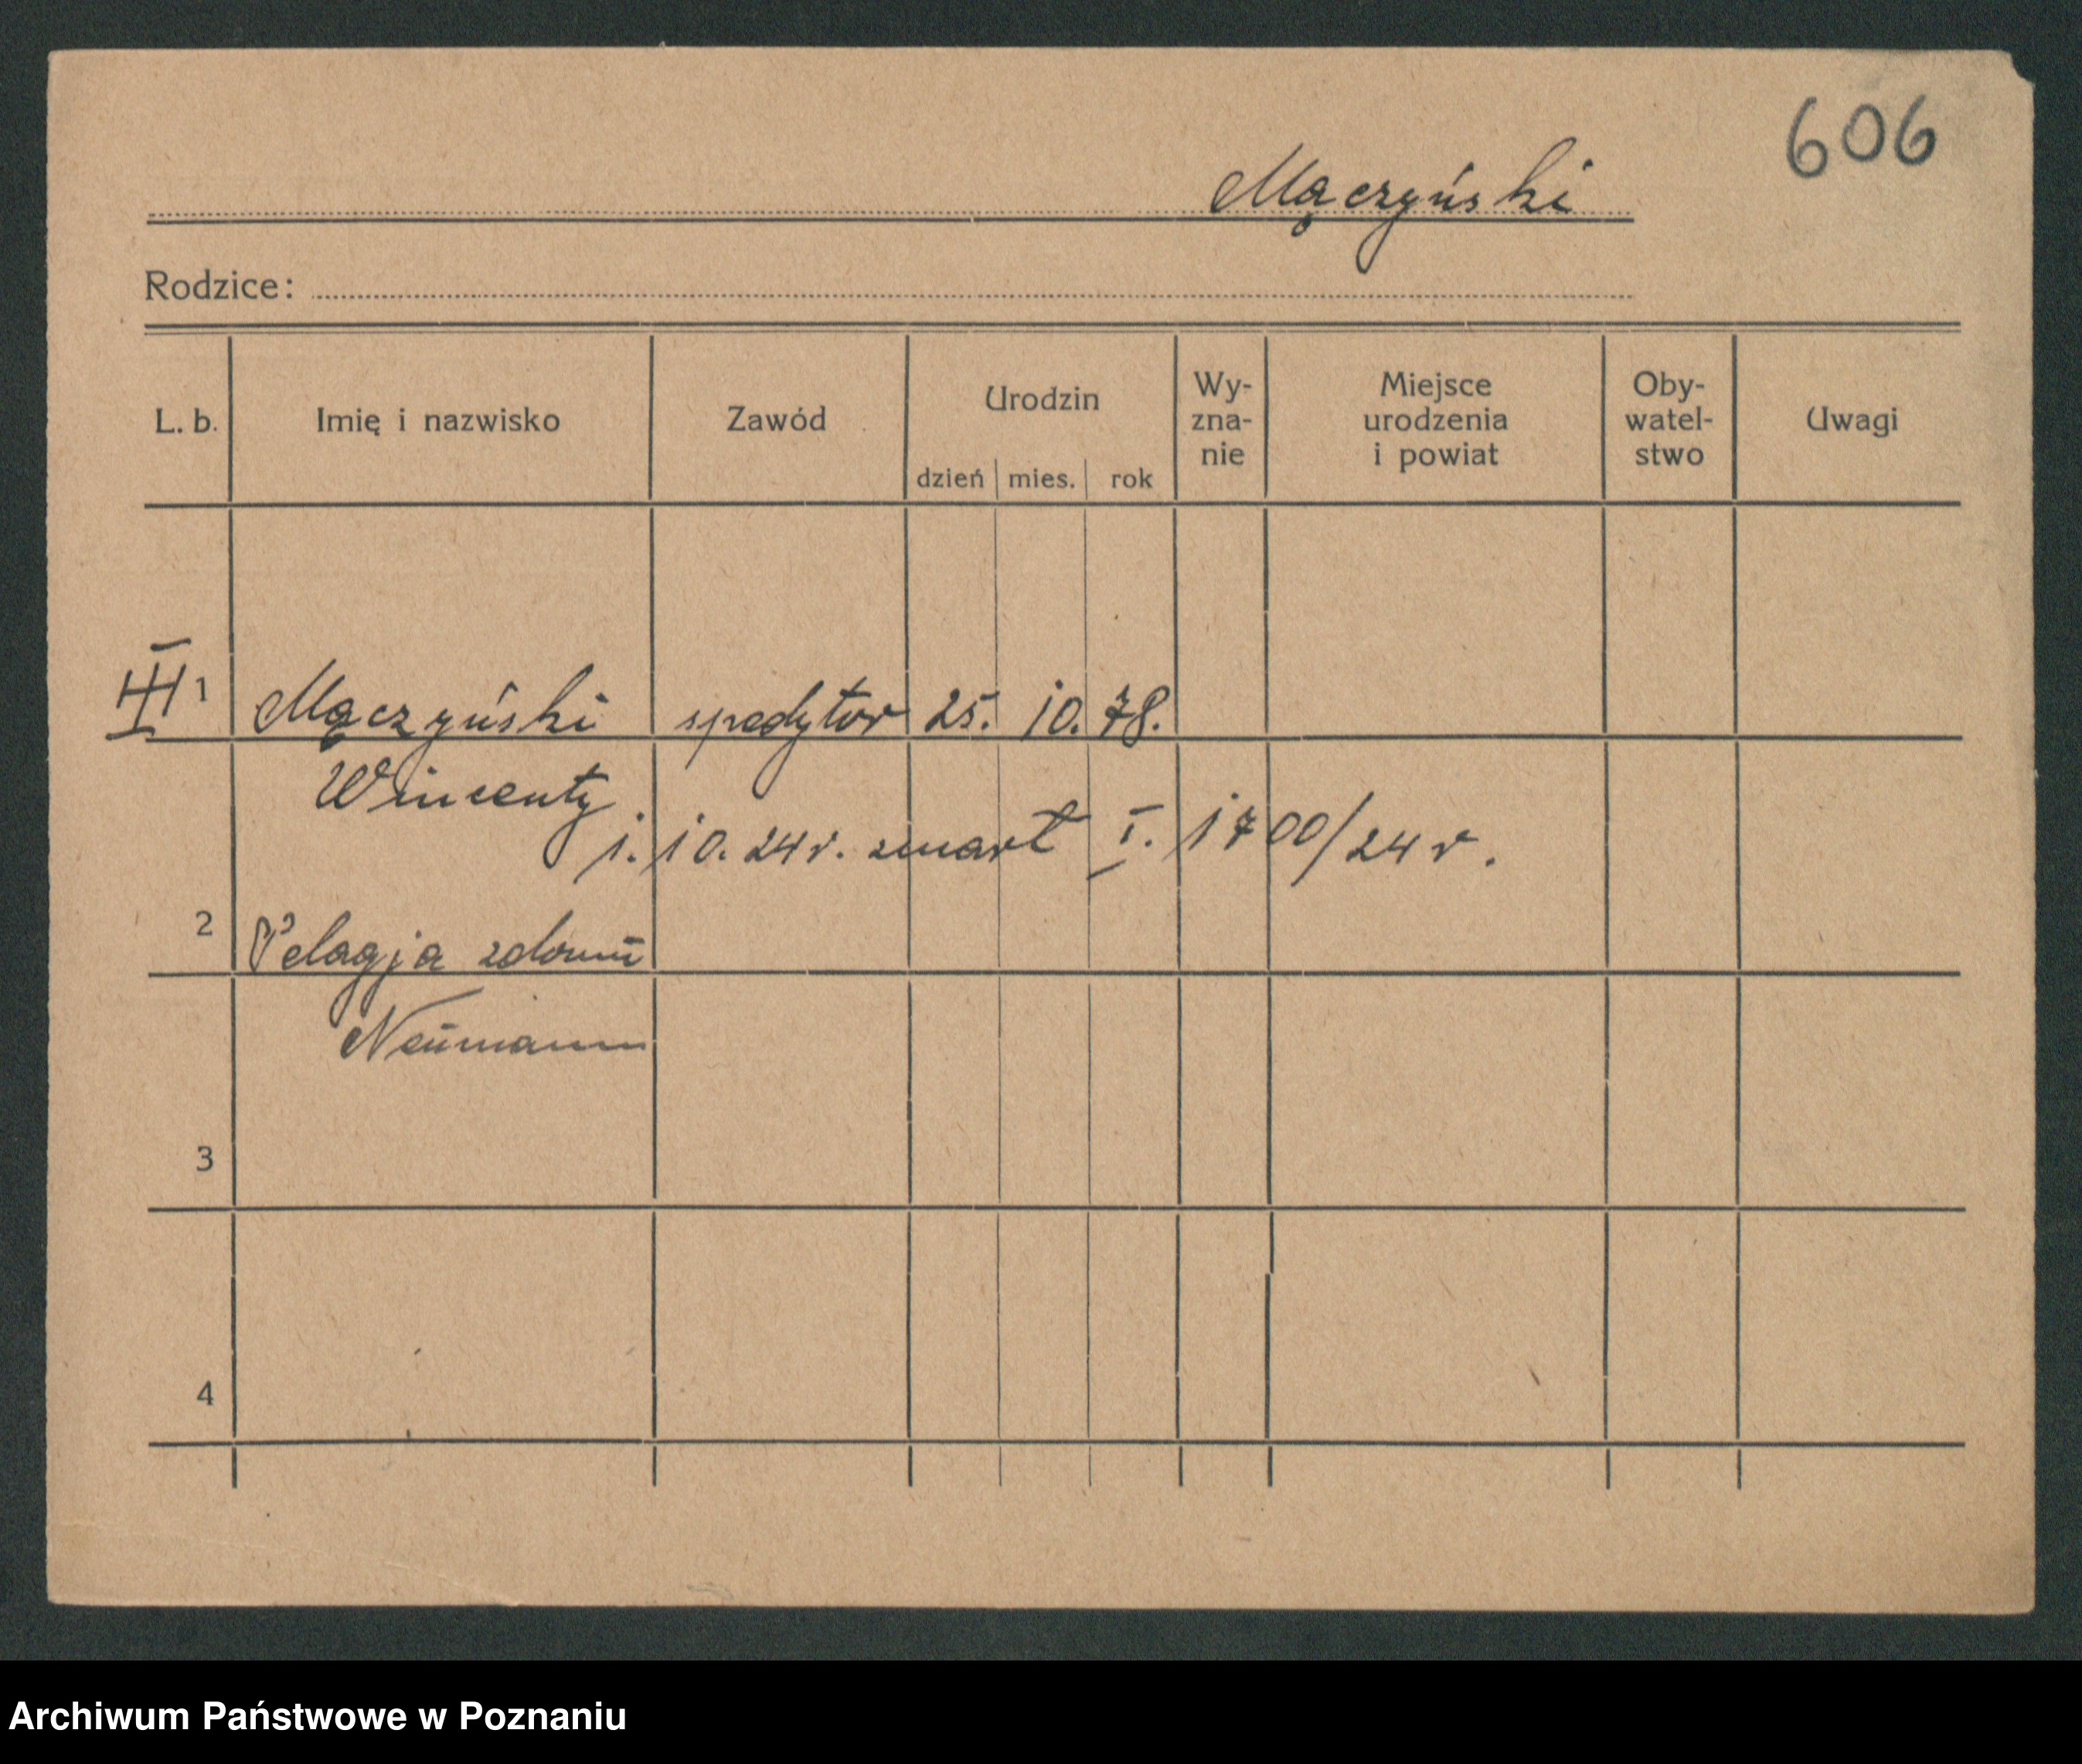 606
Mączyński
Rodzice:
L. b. Imię i nazwisko Zawód Urodzin dzień mies. rok Wy-zna-nie Miejsce urodzenia i powiat Oby-watel-stwo Uwagi
1 Mączyński spedytor 25. 10. 78.
Wincenty
1. 10. 24 r. zmarł I. 1700/24 r.
2 Pelagja zdomu
Neumann
3
4
Archiwum Państwowe w Poznaniu